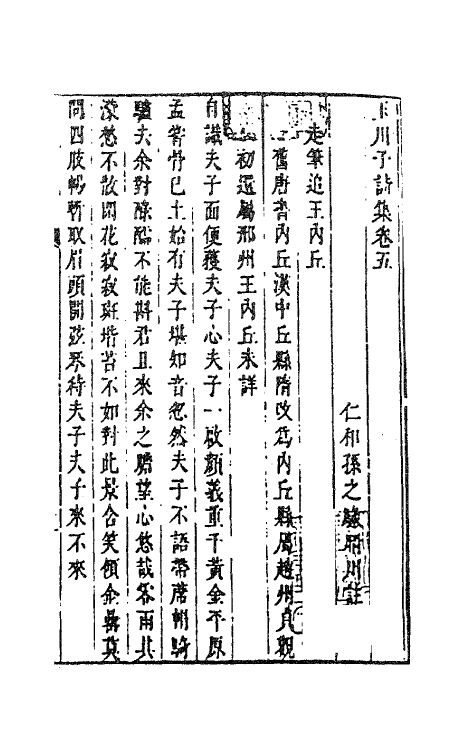 玉川子詩集卷五
仁和孫之騄晴川註
走筆追王內丘
舊唐書內丘漢中丘縣隋改爲內丘縣屬趙州貞觀
初還屬邢州王內丘未詳
自識夫子面便獲夫子心夫子一啟顏義重千黃金平原
孟嘗骨已土始有夫子堪知音忽然夫子不語帶席帽騎
驢去余對醁醽不能斟君且來余之瞻望心悠哉零雨其
濛愁不散閒花寂寂斑堦苔不如對此景含笑領金罍莫
問四肢暢暫取眉頭開弦琴待夫子夫子來不來